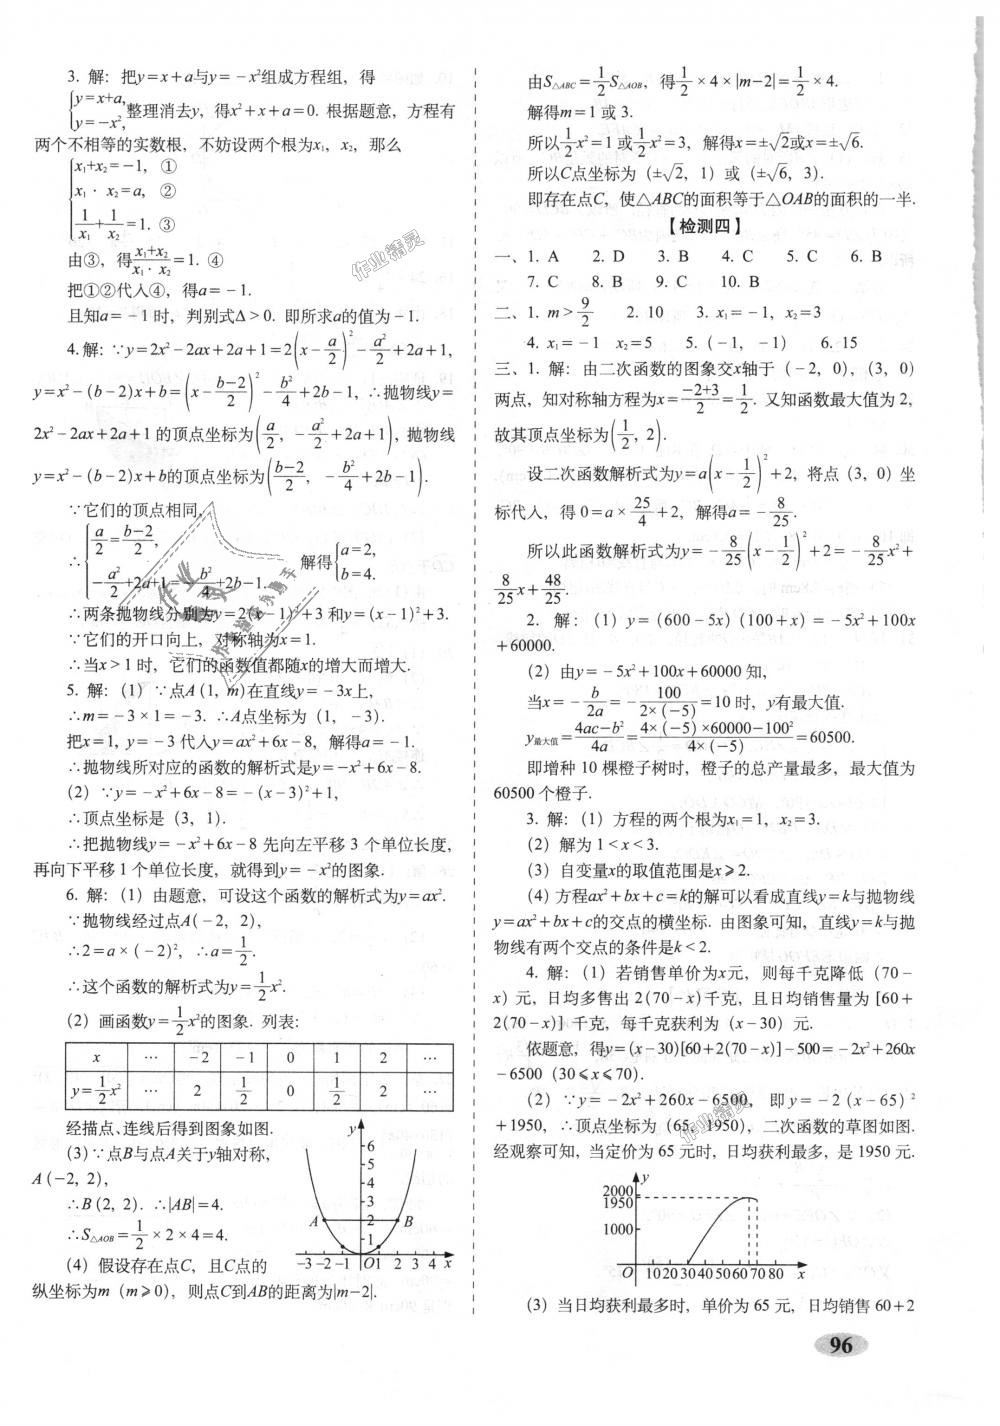 3. 解：把y=x+a与y=-x²组成方程组，得
{y=x+a, y=-x², 整理消去y，得x²+x+a=0. 根据题意，方程有
两个不相等的实数根，不妨设两个根为x₁，x₂，那么
{x₁+x₂=-1，①
x₁·x₂=a，②
1/x₁+1/x₂=1. ③
由③，得(x₁+x₂)/(x₁·x₂)=1. ④
把①②代入④，得a=-1.
且知a=-1时，判别式Δ>0. 即所求a的值为-1.
4.解：∵y=2x²-2ax+2a+1=2(x-a/2)²-a²/2+2a+1，
y=x²-(b-2)x+b=(x-(b-2)/2)²-b²/4+2b-1，∴抛物线y=
2x²-2ax+2a+1的顶点坐标为(a/2，-a²/2+2a+1)，抛物线
y=x²-(b-2)x+b的顶点坐标为((b-2)/2，-b²/4+2b-1).
∵它们的顶点相同，
∴{a/2=(b-2)/2, -a²/2+2a+1=-b²/4+2b-1. 解得{a=2, b=4.
∴两条抛物线分别为y=2(x-1)²+3和y=(x-1)²+3.
∵它们的开口向上，对称轴为x=1.
∴当x>1时，它们的函数值都随x的增大而增大.
5. 解：(1) ∵点A(1, m)在直线y=-3x上，
∴m=-3×1=-3. ∴A点坐标为（1，-3）.
把x=1, y=-3代入y=ax²+6x-8，解得a=-1.
∴抛物线所对应的函数的解析式是y=-x²+6x-8.
(2) ∵y=-x²+6x-8=-(x-3)²+1，
∴顶点坐标是（3，1）.
∴把抛物线y=-x²+6x-8先向左平移3个单位长度，
再向下平移1个单位长度，就得到y=-x²的图象.
6. 解：(1) 由题意，可设这个函数的解析式为y=ax².
∵抛物线经过点A(-2，2)，
∴2=a×(-2)²，∴a=1/2.
∴这个函数的解析式为y=1/2x².
(2) 画函数y=1/2x²的图象. 列表：
x … -2 -1 0 1 2 …
y=1/2x² … 2 1/2 0 1/2 2 …
经描点、连线后得到图象如图.
(3) ∵点B与点A关于y轴对称，
A(-2，2)，
∴B(2，2). ∴|AB|=4.
∴S△AOB=1/2×2×4=4.
(4) 假设存在点C，且C点的
纵坐标为m（m≥0），则点C到AB的距离为|m-2|.
y
6
5
4
3
A 2 B
1
-3 -2 -1 O 1 2 3 4 x
由S△ABC=1/2S△AOB，得1/2×4×|m-2|=1/2×4.
解得m=1或3.
所以1/2x²=1或1/2x²=3，解得x=±√2或x=±√6.
所以C点坐标为（±√2，1）或（±√6，3）.
即存在点C，使△ABC的面积等于△OAB的面积的一半.
【检测四】
一、1. A 2. D 3. B 4. C 5. C 6. B
7. C 8. B 9. C 10. B
二、1. m>9/2 2. 10 3. x₁=-1，x₂=3
4. x₁=-1 x₂=5 5.（-1，-1） 6. 15
三、1. 解：由二次函数的图象交x轴于（-2，0），（3，0）
两点，知对称轴方程为x=(-2+3)/2=1/2. 又知函数最大值为2，
故其顶点坐标为(1/2，2).
设二次函数解析式为y=a(x-1/2)²+2，将点（3，0）坐
标代人，得0=a×25/4+2，解得a=-8/25.
所以此函数解析式为y=-8/25(x-1/2)²+2=-8/25x²+
8/25x+48/25.
2. 解：(1) y=(600-5x)(100+x)=-5x²+100x
+60000.
(2) 由y=-5x²+100x+60000知，
当x=-b/2a=-100/(2×(-5))=10时，y有最大值.
y最大值=(4ac-b²)/4a=(4×(-5)×60000-100²)/(4×(-5))=60500.
即增种10棵橙子树时，橙子的总产量最多，最大值为
60500个橙子.
3. 解：(1) 方程的两个根为x₁=1，x₂=3.
(2) 解为1<x<3.
(3) 自变量x的取值范围是x≥2.
(4) 方程ax²+bx+c=k的解可以看成直线y=k与抛物线
y=ax²+bx+c的交点的横坐标. 由图象可知，直线y=k与抛
物线有两个交点的条件是k<2.
4. 解：(1) 若销售单价为x元，则每千克降低（70-
x）元，日均多售出2(70-x)千克，且日均销售量为[60+
2(70-x)]千克，每千克获利为（x-30）元.
依题意，得y=(x-30)[60+2(70-x)]-500=-2x²+260x
-6500（30≤x≤70）.
(2) ∵y=-2x²+260x-6500，即y=-2(x-65)²
+1950，∴顶点坐标为（65，1950），二次函数的草图如图.
经观察可知，当定价为65元时，日均获利最多，是1950元.
y
2000
1950
1000
O 10 20 30 40 50 60 70 80 x
(3) 当日均获利最多时，单价为65元，日均销售60+2
96
作业精灵
作业精灵